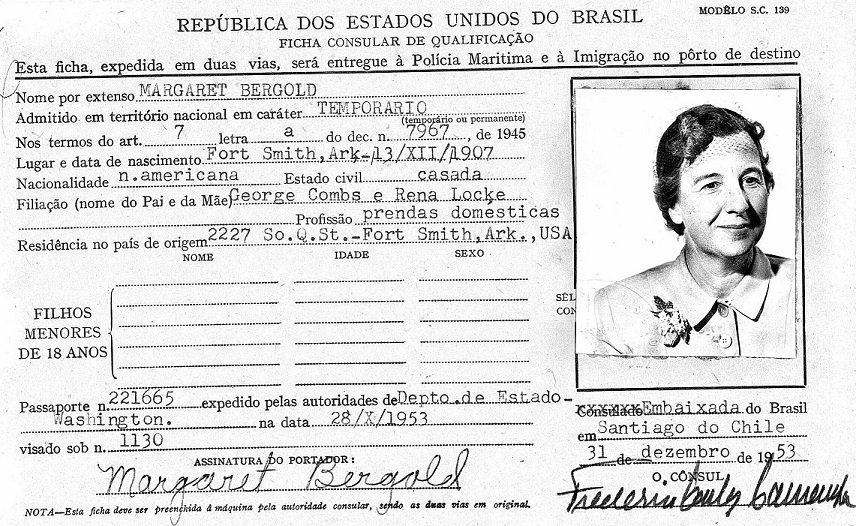 MODÊLO S.C. 139
REPÚBLICA DOS ESTADOS UNIDOS DO BRASIL
FICHA CONSULAR DE QUALIFICAÇÃO
Esta ficha, expedida em duas vias, será entregue à Polícia Maritima e à Imigração no pôrto de destino
Nome por extenso MARGARET BERGOLD
Admitido em território nacional em caráter TEMPORARIO
(temporário ou permanente)
Nos termos do art. 7 letra a do dec. n. 7967, de 1945
Lugar e data de nascimento Fort Smith,Ark-13/XII/1907
Nacionalidade n.americana Estado civil casada
Filiação (nome do Pai e da Mãe) George Combs e Rena Locke
Profissão prendas domesticas
Residência no país de origem 2227 So.Q.St.-Fort Smith,Ark.,USA
NOME IDADE SEXO
FILHOS
MENORES
DE 18 ANOS
Passaporte n. 221665 expedido pelas autoridades de Depto.de Estado-
Washington. na data 28/X/1953
visado sob n. 1130
ASSINATURA DO PORTADOR:
Margaret Bergold
NOTA—Esta ficha deve ser preenchida á máquina pela autoridade consular, sendo as duas vias em original.
Consulado Embaixada do Brasil
em Santiago do Chile
31 de dezembro de 1953
O CÔNSUL